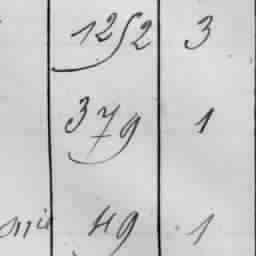 1252 3
379 1
49 1